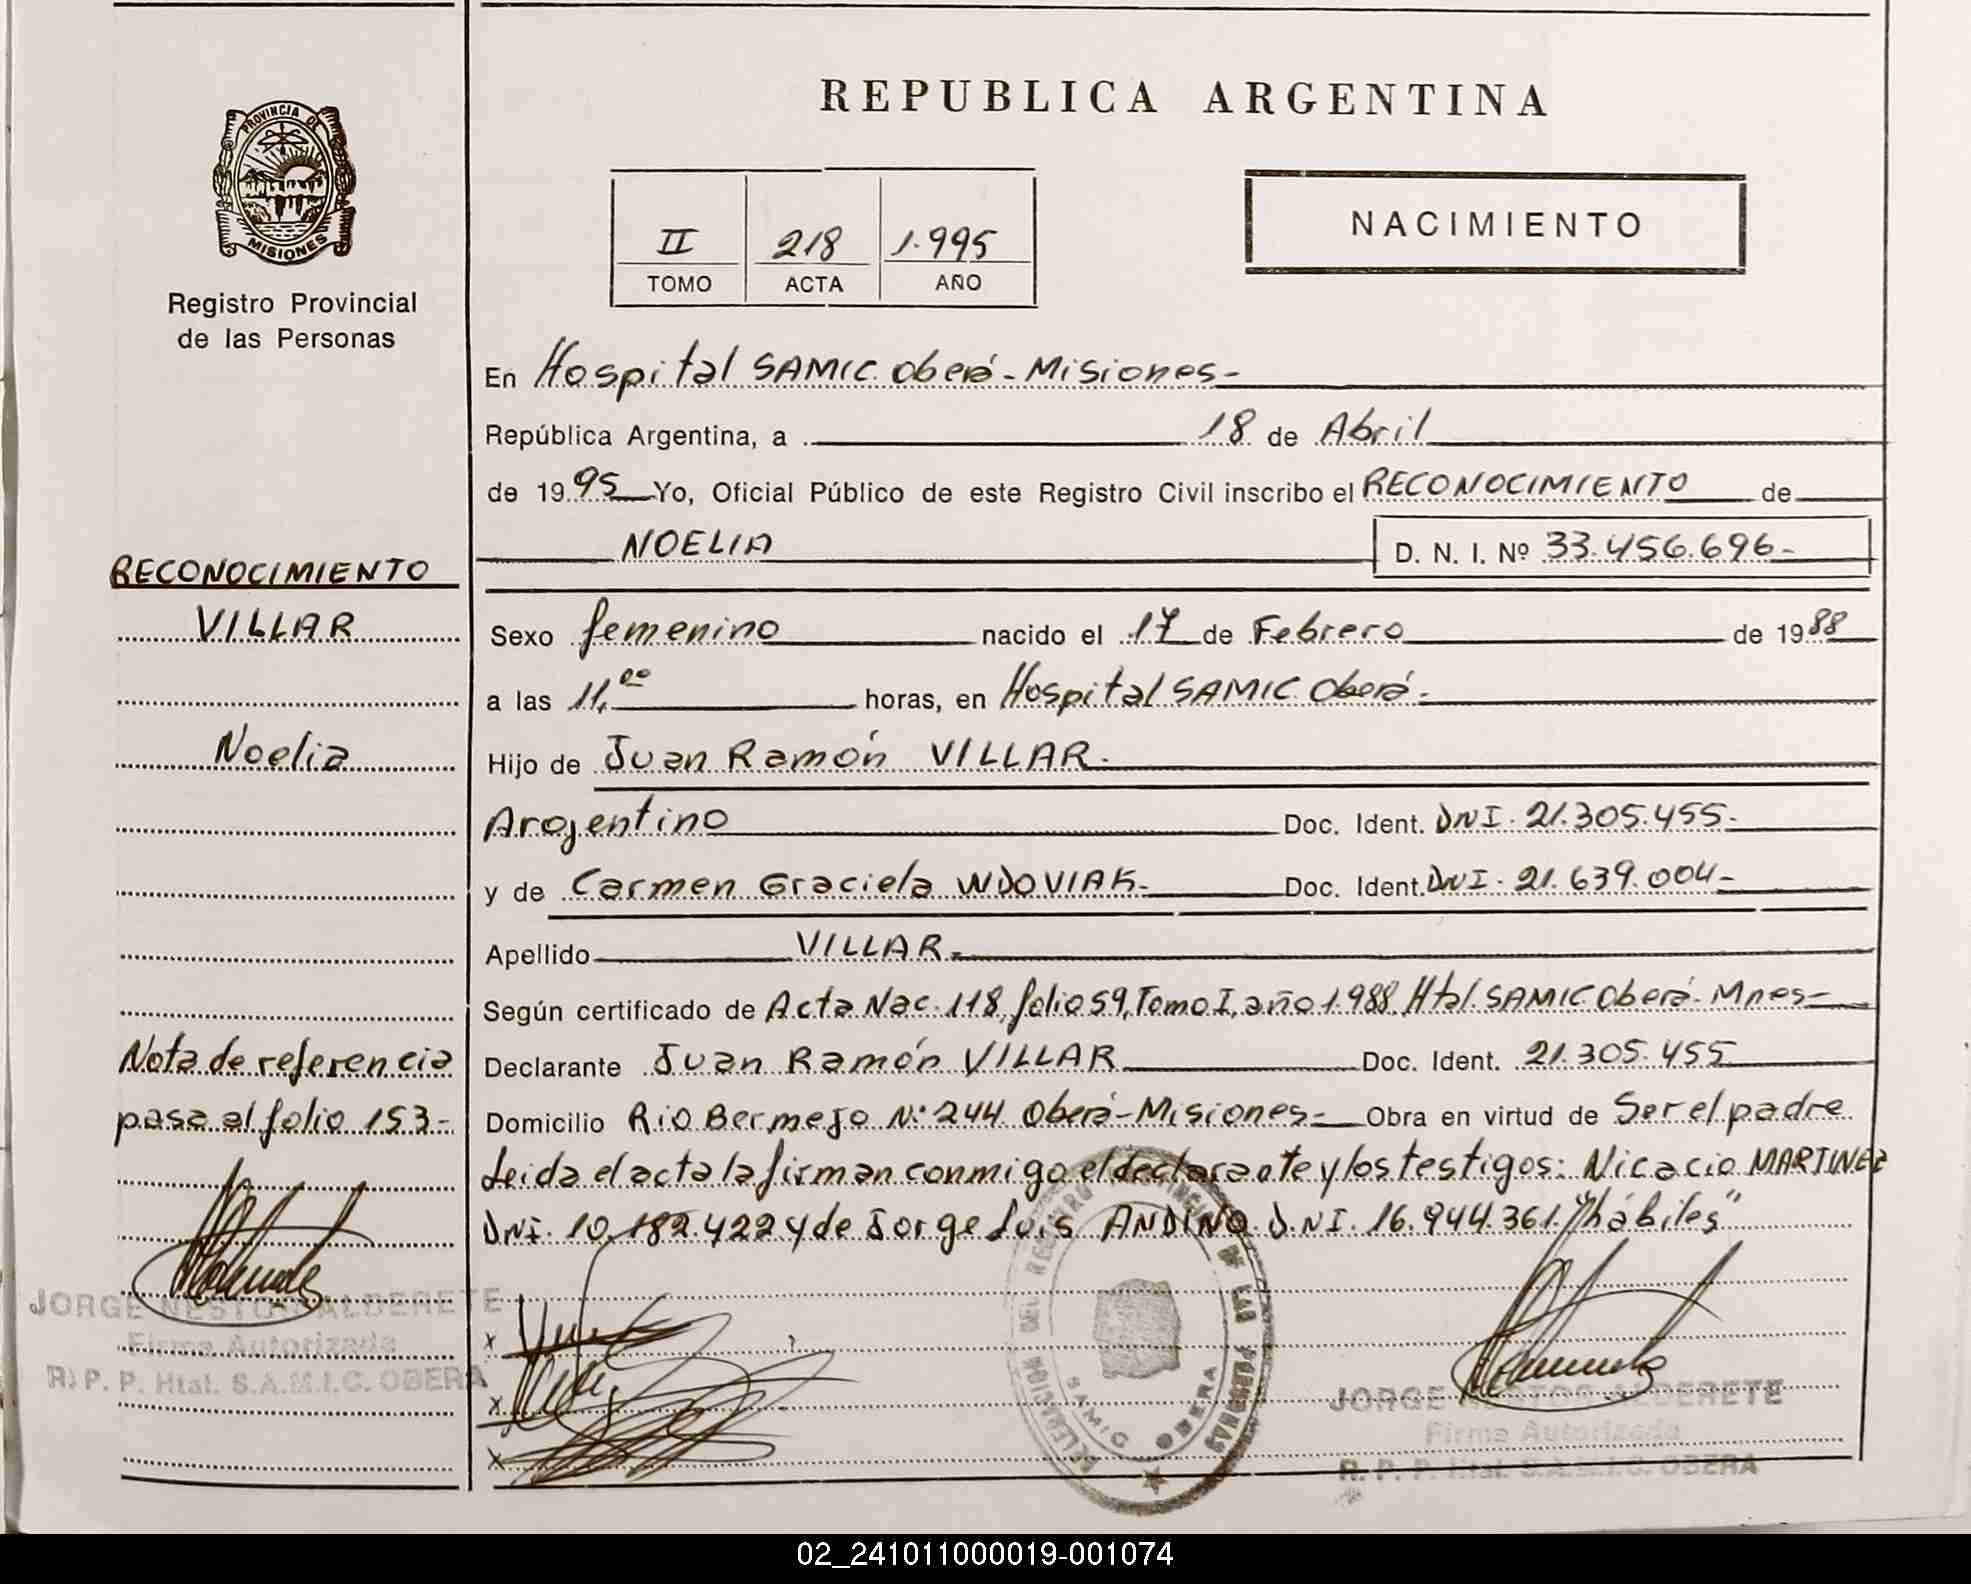 REPUBLICA ARGENTINA
PROVINCIA DE
MISIONES
Registro Provincial
de las Personas
II 218 1.995
TOMO ACTA AÑO
NACIMIENTO
En Hospital SAMIC Oberá - Misiones -
República Argentina, a 18 de Abril
de 1995 Yo, Oficial Público de este Registro Civil inscribo el RECONOCIMIENTO de
NOELIA D. N. I. Nº 33.456.696-
RECONOCIMIENTO
VILLAR
Noelia
Sexo femenino nacido el 17 de Febrero de 1988
a las 11,00 horas, en Hospital SAMIC Oberá.
Hijo de Juan Ramón VILLAR.
Argentino Doc. Ident. DNI. 21.305.455.
y de Carmen Graciela WDOVIAK- Doc. Ident. DNI. 21.639.004-
Apellido VILLAR.
Según certificado de Acta Nac. 118, folio 59, Tomo I, año 1.988, Htal. SAMIC Oberá - Mnes-
Declarante Juan Ramón VILLAR Doc. Ident. 21.305.455
Domicilio Rio Bermejo N° 244 Oberá - Misiones- Obra en virtud de Ser el padre
Leida el acta la firman conmigo el declarante y los testigos: Nicacio MARTINEZ
DNI. 10.182.422 y de Jorge Luis ANDINO D.N.I. 16.944.361. "hábiles"
Nota de referencia
pasa al folio 153-
JORGE NESTOR ALDERETE
Firma Autorizada
R. P. P. Htal. S.A.M.I.C. OBERA
x
x
x
DELEGACION DEL REGISTRO PROVINCIAL DE LAS PERSONAS
SAMIC OBERA
JORGE NESTOR ALDERETE
Firma Autorizada
R. P. P. Htal. S.A.M.I.C. OBERA
02_241011000019-001074